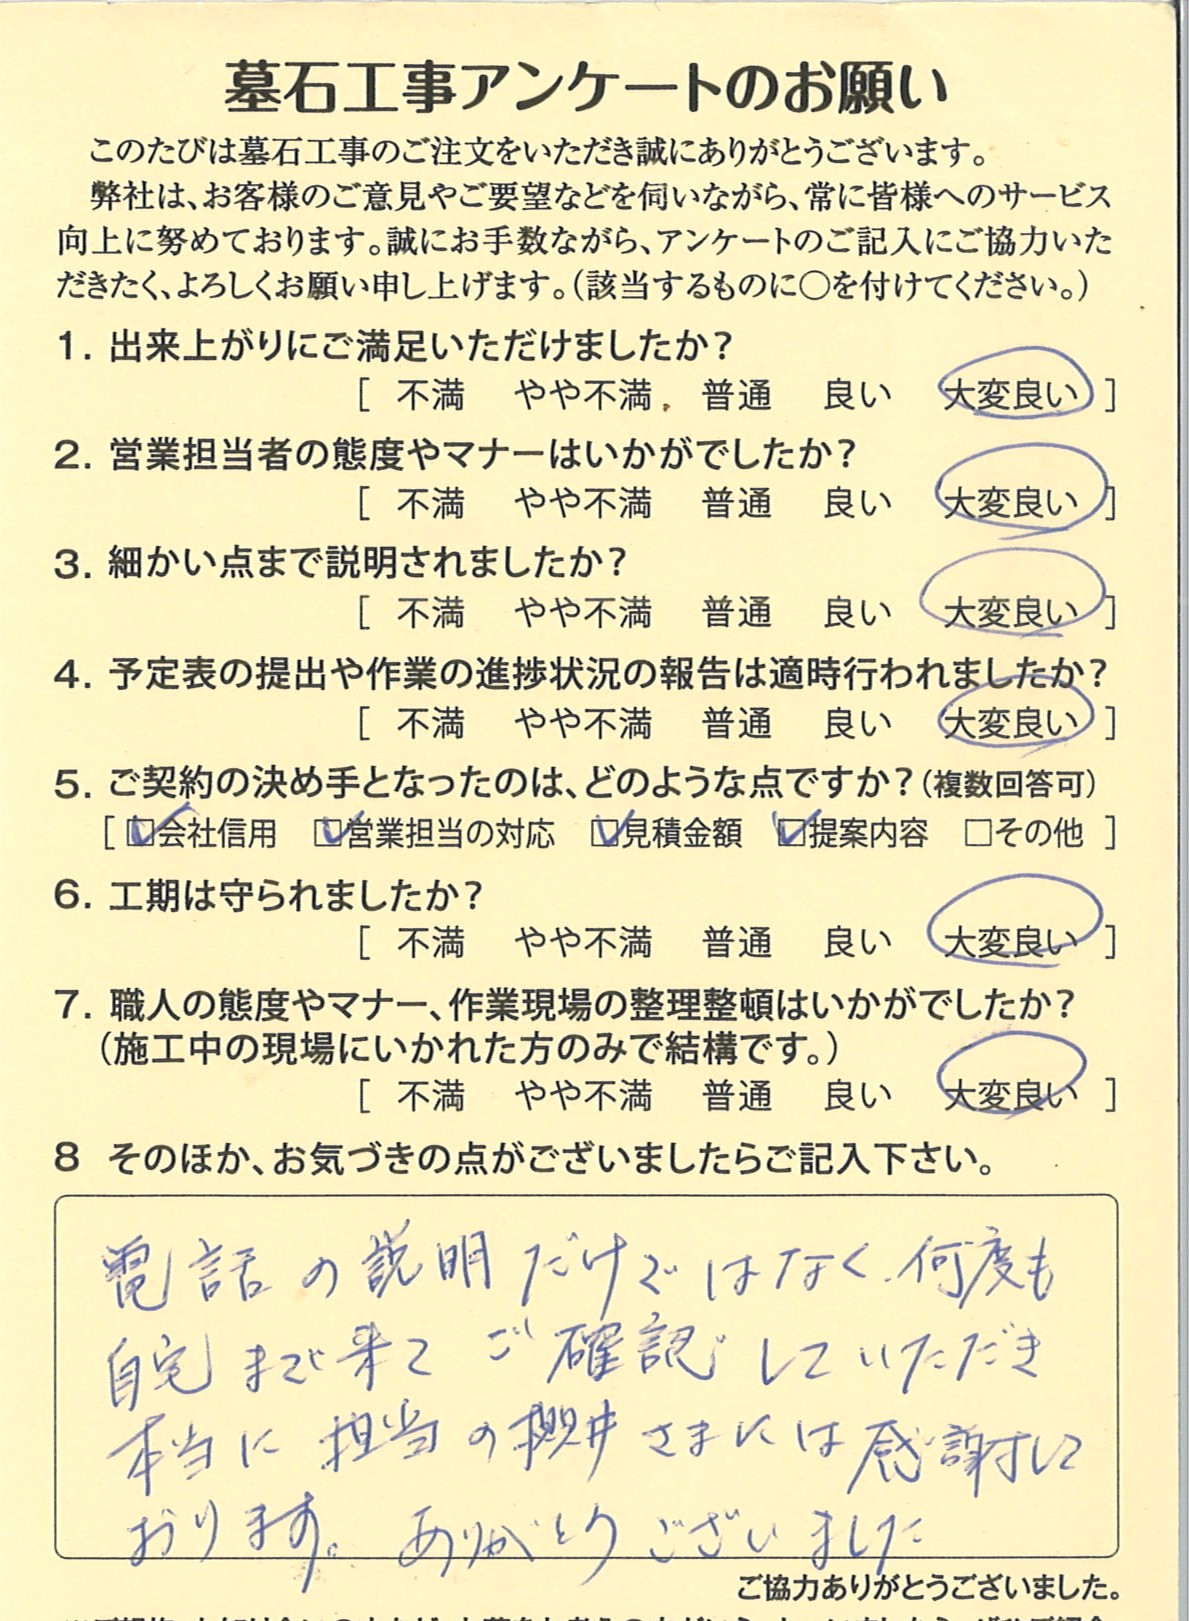 墓石工事アンケートのお願い
このたびは墓石工事のご注文をいただき誠にありがとうございます。
弊社は、お客様のご意見やご要望などを伺いながら、常に皆様へのサービス
向上に努めております。誠にお手数ながら、アンケートのご記入にご協力いた
だきたく、よろしくお願い申し上げます。(該当するものに○を付けてください。)
1. 出来上がりにご満足いただけましたか?
[ 不満 やや不満 普通 良い 大変良い ]
2. 営業担当者の態度やマナーはいかがでしたか?
[ 不満 やや不満 普通 良い 大変良い ]
3. 細かい点まで説明されましたか?
[ 不満 やや不満 普通 良い 大変良い ]
4. 予定表の提出や作業の進捗状況の報告は適時行われましたか?
[ 不満 やや不満 普通 良い 大変良い ]
5. ご契約の決め手となったのは、どのような点ですか?(複数回答可)
[ ☑会社信用 ☑営業担当の対応 ☑見積金額 ☑提案内容 □その他 ]
6. 工期は守られましたか?
[ 不満 やや不満 普通 良い 大変良い ]
7. 職人の態度やマナー、作業現場の整理整頓はいかがでしたか?
(施工中の現場にいかれた方のみで結構です。)
[ 不満 やや不満 普通 良い 大変良い ]
8 そのほか、お気づきの点がございましたらご記入下さい。
電話の説明だけではなく、何度も
自宅まで来てご確認していただき
本当に担当の櫻井さまには感謝して
おります。ありがとうございました
ご協力ありがとうございました。